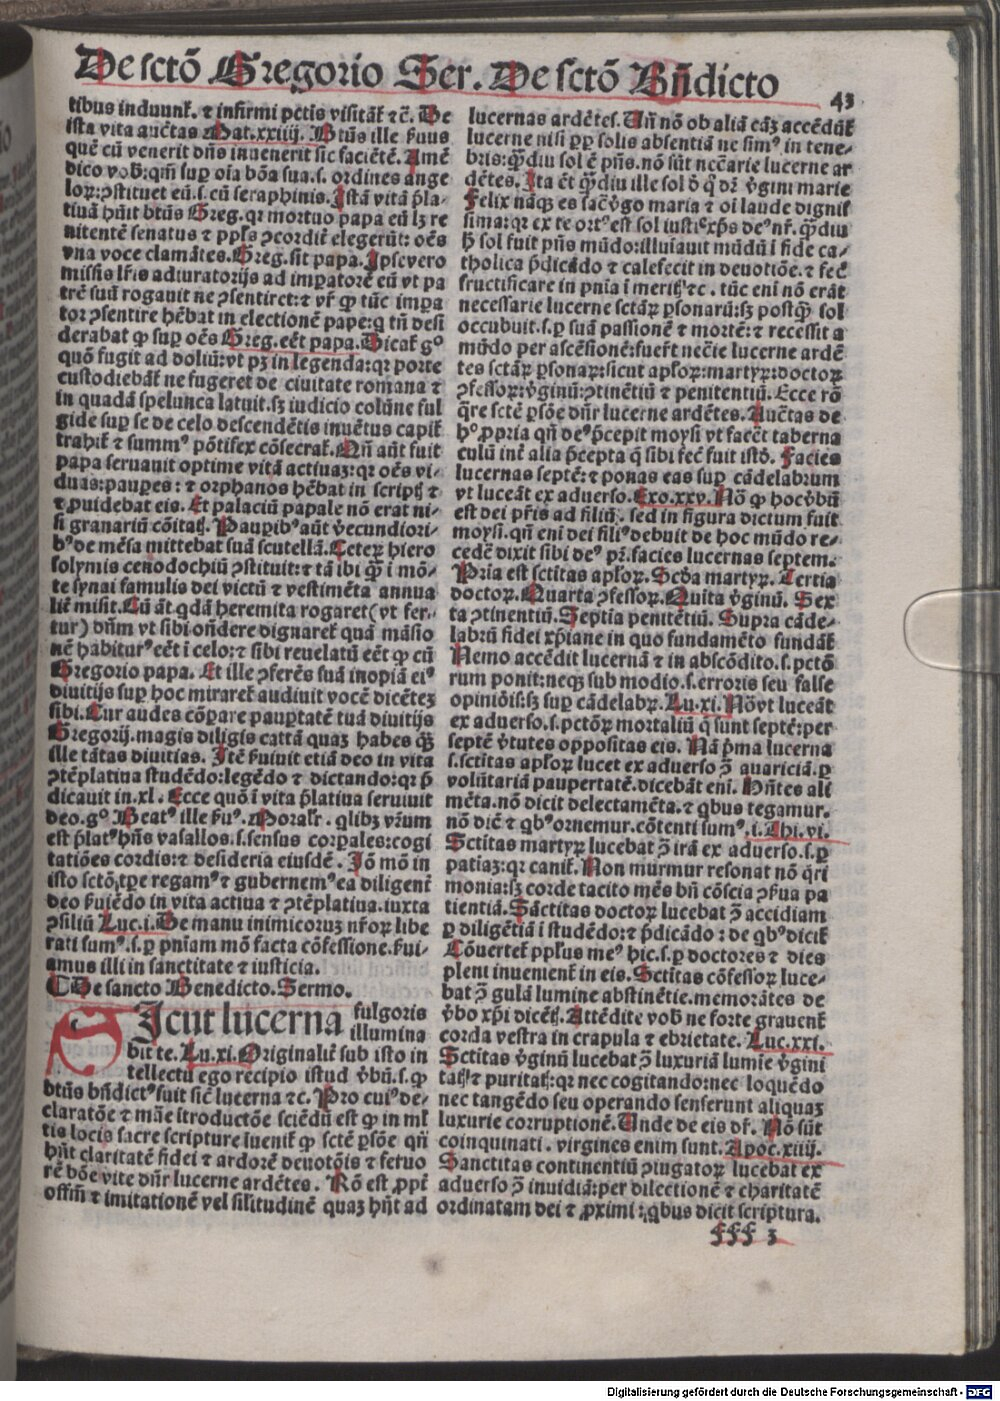 De sctō Gregorio Ser. De sctō Bn̄dicto
43
tibus induunt᷑. ⁊ infirmi pctīs visitāt᷑ ⁊c̄. De
ista vita auctas Mat. xxiiij. Btūs ille ẜuus
quē cū venerit dn̄s inuenerit sic faciētē. Amē
dico vob̄: qm̄ sup oīa bōa sua. s. ordines ange
loꝝ: ꝯstituet eū. s. cū seraphinis. Istā vitā p̄la-
tiuā hūit btūs Greg. qꝛ mortuo papa eū lꝫ re
nitentē senatus ⁊ ppl̄s ꝯcordit̄ elegerūt: oēs
vna voce clamātes. Greg. sit papa. Ipse vero
missis lr̄is adiuratorijs ad imꝑatorē cū vt pa
trē suū rogauit ne ꝯsentiret: ⁊ vr̄ ꝙ tūc imꝑa
tor ꝯsentire hēbat in electionē pape: q tn̄ desi
derabat ꝙ sup oēs Greg. eēt papa. Dicat᷑ gº
quō fugit ad doliū: vt pꝫ in legenda: qꝛ porte
custodiebāt᷑ ne fugeret de ciuitate romana ⁊
in quadā spelunca latuit. sꝫ iudicio colūne ful
gide sup se de celo descendētis inuētus capit᷑
trahit᷑ ⁊ summꝰ pōtifex cōsecrat᷑. Qn̄ aūt fuit
papa seruauit optime vitā actiuaꝫ: qꝛ oēs vi-
duas: pauꝑes: ⁊ orphanos hēbat in script᷑ ⁊
⁊ ꝓuidebat eis. Et palaciū papale nō erat ni-
si granariū cōitat᷑. Pauꝑibꝰ aūt v̄ecundiori-
bꝰ de mēsa mittebat suā scutellā. Ceteꝝ hiero
solymis cenodochiū ꝯstituit: ⁊ tā ibi ꝙ̄ ī mō-
te synai famulis dei victū ⁊ vestimēta annua
lit̄ misit. Cū āt qdā heremita rogaret (vt fer-
tur) dn̄m vt sibi on̄dere dignaret᷑ quā māsio
nē habiturꝰ eēt ī celo: ⁊ sibi reuelatū eēt ꝙ cū
Gregorio papa. Et ille ꝯferēs suā inopiā eiꝰ
diuitijs sup hoc miraret᷑ audiuit vocē dicēteꝫ
sibi. Cur audes cōꝑare pauꝑtatē tuā diuitijs
Gregorij. magis diligis cattā quaꝫ habes qꝫ̄
ille tātas diuitias. Itē ẜuiuit etiā deo in vita
ꝯtēplatiua studēdo: legēdo ⁊ dictando: qꝛ p̄
dicauit in. xl. Ecce quō ī vita p̄latiua seruiuit
deo. gº Beatꝰ ille ẜuꝰ. Moralr̄. qlibꝫ vr̄um
est p̄latꝰ hn̄s vasallos. s. sensus corꝑales: cogi
tatiōes cordis: ⁊ desideria eiusdē. Iō mō in
isto sctō tꝑe regamꝰ ⁊ gubernemꝰ ea diligent̄
deo ẜuiēdo in vita actiua ⁊ ꝯtēplatiua. iuxta
ꝯsiliū Luc. i. De manu inimicoruꝫ nr̄oꝝ libe
rati sumꝰ. s. ꝑ pn̄iam mō facta cōfessione. ẜui-
amus illi in sanctitate ⁊ iusticia.
¶ De sancto Benedicto. Sermo.
SIcut lucerna fulgoris
illumina
bit te. Lu. xi. Originalit̄ sub isto in
tellectu ego recipio istud v̄bū. s. ꝙ
btūs bn̄dictꝰ fuit sic̄ lucerna ⁊c. Pro cuiꝰ de-
claratōe ⁊ māe ītroductōe sciēdū est ꝙ in ml̄
tis locis sacre scripture īuenit᷑ ꝙ sctē ꝑsōe qn̄
hn̄t claritatē fidei ⁊ ardorē deuotōis ⁊ feruo
rē bōe vite dn̄r lucerne ardētes. Rō est ꝓpt̄
offm̄ ⁊ imitationē vel silitudinē quaꝫ hn̄t ad
lucernas ardētes. Un̄ nō ob aliā cāꝫ accēdūt᷑
lucerne nisi ꝓp solis absentiā ne simꝰ in tene-
bris: ꝙ̄diu sol ē pn̄s. nō sūt nec̄arie lucerne ar
dētes. Ita ēt ꝙ̄diu ille sol ꝺ q dr̄ v̄gini marie
Felix nāqꝫ es sac̄ v̄go maria ⁊ oī laude digniſ
sima: qꝛ ex te ortꝰ est sol iusti᷑ xp̄s deꝰ nr̄. ꝙ̄diu
h̄ sol fuit pn̄s mūdo: illuīauit mūdū ī fide ca-
tholica p̄dicādo ⁊ calefecit in deuotiōe. ⁊ fec̄
fructificare in pn̄ia ī merit᷑ ⁊c. tūc enī nō erāt
necessarie lucerne sctāꝝ ꝑsonarū: sꝫ postꝙ̄ sol
occubuit. s. ꝑ suā passionē ⁊ mortē: ⁊ recessit a
mūdo per ascēsionē: fuer̄t nec̄ie lucerne ardē
tes sctāꝝ ꝑsonaꝝ: sicut apl̄oꝝ: martyꝝ: doctoꝝ
ꝯfessoꝝ: v̄ginū: ꝯtinētiū ⁊ penitentiū. Ecce rō
q̄re sctē ꝑsōe dn̄r lucerne ardētes. Auctas de
hº ꝓpria qn̄ deꝰ p̄cepit moysi vt facēt taberna
culū int̄ alia p̄cepta q̄ sibi fec̄ fuit istō. Facies
lucernas septē: ⁊ ponas eas sup cādelabrum
vt luceāt ex aduerso. Exo. xxv. Nō ꝙ hoc v̄bū
est dei pr̄is ad filiū. sed in figura dictum fuit
moysi. qn̄ eni dei filiꝰ debuit de hoc mūdo re-
cedē dixit sibi deꝰ pr̄. facies lucernas septem.
Pria est sctītas apl̄oꝝ. Scd̄a martyꝝ. Tertia
doctoꝝ. Quarta ꝯfessoꝝ. Quīta v̄ginū. Sex
ta ꝯtinentiū. Septīa penitētiū. Supra cāde-
labrū fidei xp̄iane in quo fundamēto fundāt᷑
Nemo accēdit lucernā ⁊ in abscōdito. s. pctō
rum ponit: neqꝫ sub modio. s. erroris seu false
opiniōis: sꝫ sup cādelabꝝ. Lu. xi. Nōvt luceāt
ex aduerso. s. pctōꝝ mortaliū q̄ sunt septē: per
septē v̄tutes oppositas eis. Nā p̄ma lucerna
s. sctītas apl̄oꝝ lucet ex aduerso ꝯ̄ auariciā. ꝑ
volūtariā pauꝑtatē. dicebāt enī. Hn̄tes ali
mēta. nō dicit delectamēta. ⁊ qbus tegamur.
nō dic̄ ⁊ qbꝰ ornemur. cōtenti sumꝰ. i. Thi. vi.
Sctītas martyꝝ lucebat ꝯ̄ irā ex aduerso. s. ꝑ
patiaꝫ: qꝛ canit᷑. Non murmur resonat nō q̄ri
monia: sꝫ corde tacito mēs bn̄ cōscia ꝯẜua pa
tientiā. Sāctitas doctoꝝ lucebat ꝯ̄ accidiam
ꝑ diligētiā ī studēdo: ⁊ p̄dicādo: de qbꝰ dicit᷑
Cōuertet᷑ ppl̄us meꝰ hic. s. ꝑ doctores ⁊ dies
pleni inuenient᷑ in eis. Sctītas cōfessoꝝ luce-
bat ꝯ̄ gulā lumine abstinētie. memorātes de
v̄bo xp̄i dicēt᷑. Attēdite vob̄ ne forte grauent᷑
corda vestra in crapula ⁊ ebrietate. Luc. xxi.
Sctītas v̄ginū lucebat ꝯ̄ luxuriā lumīe v̄gini
tat᷑ ⁊ puritat᷑: qꝛ nec cogitando: nec loquēdo
nec tangēdo seu operando senserunt aliquaꝫ
luxurie corruptionē. Unde de eis dr̄. Nō sūt
coinquinati. virgines enim sunt. Apoc. xiiij.
Sanctitas continentiū ꝯiugatoꝝ lucebat ex
aduerso ꝯ̄ inuidiā: per dilectionē ⁊ charitatē
ordinatam dei ⁊ ꝓximi: qbus dicit scriptura.
fff 3
Digitalisierung gefördert durch die Deutsche Forschungsgemeinschaft - DFG